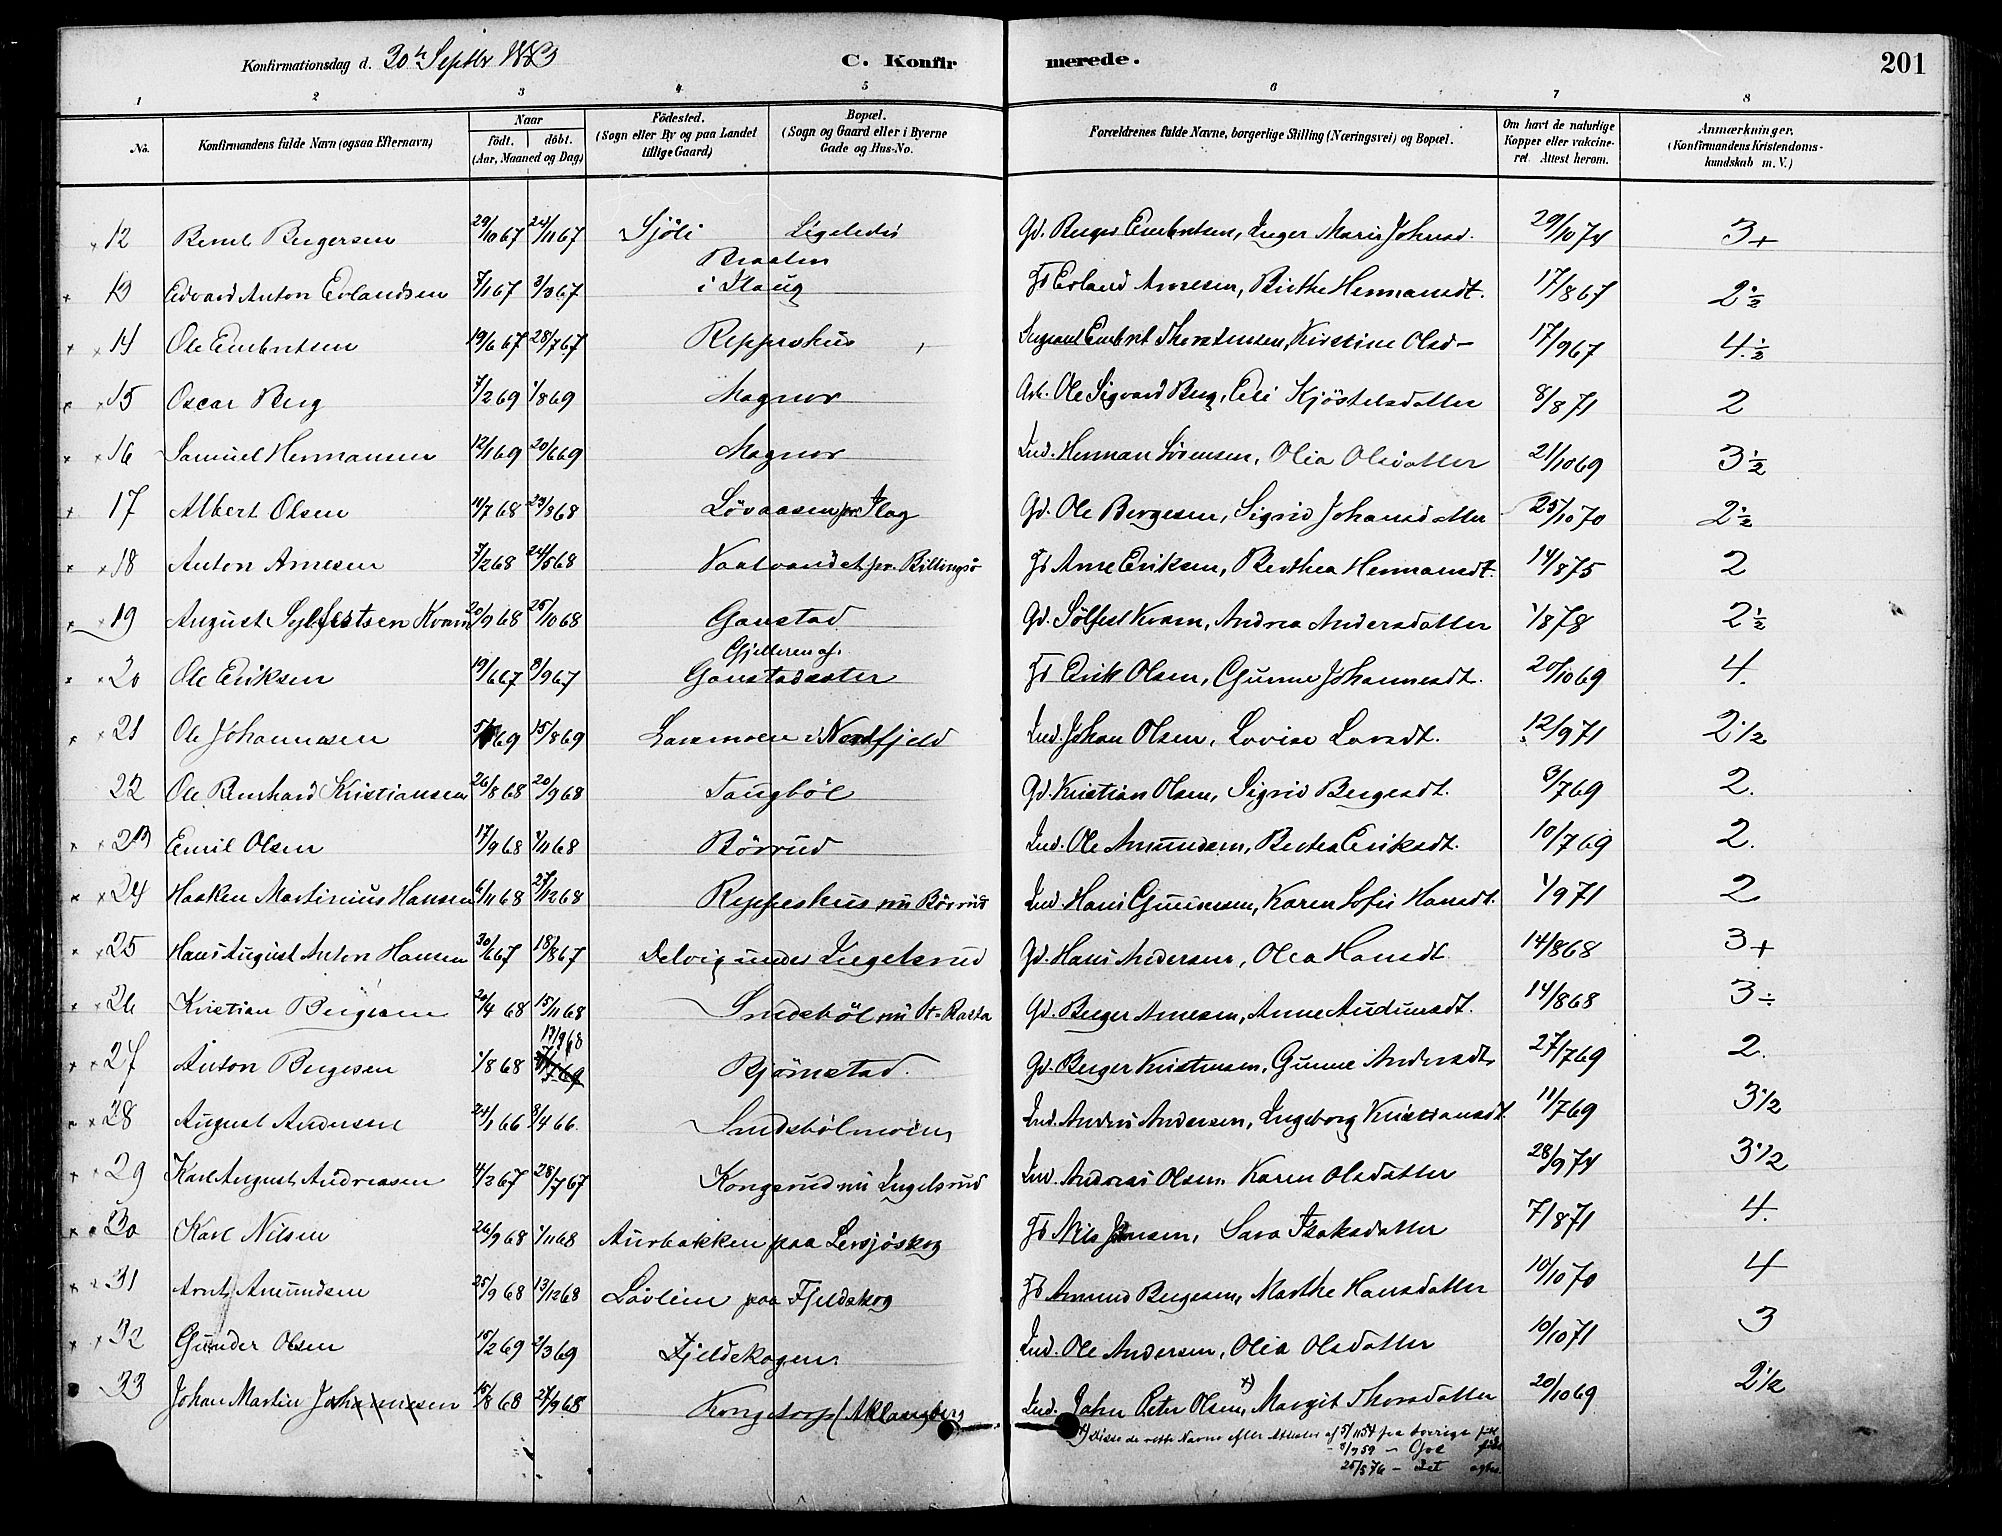 Konfirmationsdag d. 30th Septbr 1883 C. Konfir merede. 201
1 2 3 4 5 6 7 8
No. Konfirmandens fulde Navn (ogsaa Efternavn) Naar født. døbt. (Aar, Maaned og Dag) Fødested. (Sogn eller By og paa Landet tillige Gaard) Bopæl. (Sogn og Gaard eller i Byerne Gade og Hus-No. Forældrenes fulde Navne, borgerlige Stilling (Næringsvei) og Bopæl. Om havt de naturlige Kopper eller vakcineret. Attest herom. Anmærkninger. (Konfirmandens Kristendomskundskab m. V.)
12 Bernt Bergersen 29/10 67 24/11 67 Sjöli Ligeledes Gd. Berger Embretsen, Inger Marie Johnsd. 29/10 74 3+
13 Edvard Anton Erlandsen 7/1 67 3/3 67 Braaten i Skaug Fd Erland Arnesen, Birthe Hermansdt. 17/8 67 2 1/2
14 Ole Embretsen 19/6 67 28/7 67 Reppeshus Sergeant Embret Thorstensen, Kirstine Olsd- 17/9 67 4 1/2
15 Oscar Berg 7/2 69 1/8 69 Magnor Arb. Ole Sigvard Berg, Eli Kjöstelsdatter 8/8 71 2
16 Samuel Hermansen 12/1 69 20/6 69 Magnor Ind. Herman Sörensen, Olia Olsdatter 21/10 69 3 1/2
17 Albert Olsen 11/7 68 Lövaasen Gd. Ole Bergesen, Sigrid Johansdatter 25/10 70 2 1/2
18 Anton Arnesen 7/2 68 24/5 68 Vaalvandet pr. Fd Arne Eriksen, Berthea Hermansdt. 14/8 75 2
19 August Sylfestsen Kvam 20/9 68 25/10 68 Gaustad Gd. Sölfest Kvam, Andrea Andersdatter 1/8 78 2 1/2
20 Ole Eriksen 19/6 67 8/9 67 Gjetteren af. Gaustadsæter Fd Erik Olsen, Gunne Johannesdt. 20/10 69 4.
21 Ole Johannesen 69 15/8 69 Larsmoen i Nordfjeld Ind. Johan Olsen, Lovise Larsdt. 12/9 71 2 1/2
22 Ole Bernhard Kristiansen 26/8 68 20/9 68 Taugböl Gd. Kristian Olsen, Sigrid Bergesdt. 3/7 69 2.
23 Emil Olsen 17/9 68 1/11 68 Börrud Ind. Ole Amundsen, Bertea Eriksdt. 10/7 69 2.
24 Haaken Martinius Hansen 6/11 68 27/12 68 Reppeshus nu Börrud Ind. Hans Gunnesen, Karen Sofie Hansdt. 1/9 71 2
25 Hans August Anton Hansen 30/6 67 18/8 67 Delvig under Ingelsrud Gd. Hans Andersen, Olea Hansdt. 14/8 68 3+
26 Kristian Bergesen 20/4 68 15/11 68 Smedsböl nu St. Rasta Gd. Berger Arnesen, Anne Audunsdt. 14/8 68 3÷
27 Anton Bergesen 1/8 68 13/9 68 Björnstad. Gd. Berger Kristensen, Gunne Andersdt. 27/7 69 2.
28 August Andersen 24/1 66 8/4 66. Smedsbölmoen Ind. Anders Andersen, Ingeborg Kristiansdt. 11/7 69 3 1/2
29 Karl August Andreasen 4/3 67 28/7 67 Kongsrud nu Ingelsrud Ind. Andreas Olsen, Karen Olsdatter 28/9 74 3 1/2
30 Karl Nilsen 26/9 68 1/11 68 Aurbakken paa Lersjöskog Fd Nils Jensen, Sara Isaksdatter 7/8 71 4.
31 Arnt Amundsen 25/9 68 13/12 68 Lövlien paa Fjeldskog Fd Amund Bergesen, Marthe Hansdatter 10/10 70 4
32 Gunder Olsen 15/2 69 2/3 69 Fjeldskogen Ind. Ole Andersen, Olia Olsdatter 10/10 71 3
33 Johan Martin Johannesen 15/8 68 27/9 68 Kongstorp (Aklangberg Ind. Jahn Peter Olsen, x) Margit Thorsdatter 20/10 69 2 1/2
x) disse de rette Navne efter Attester af paa